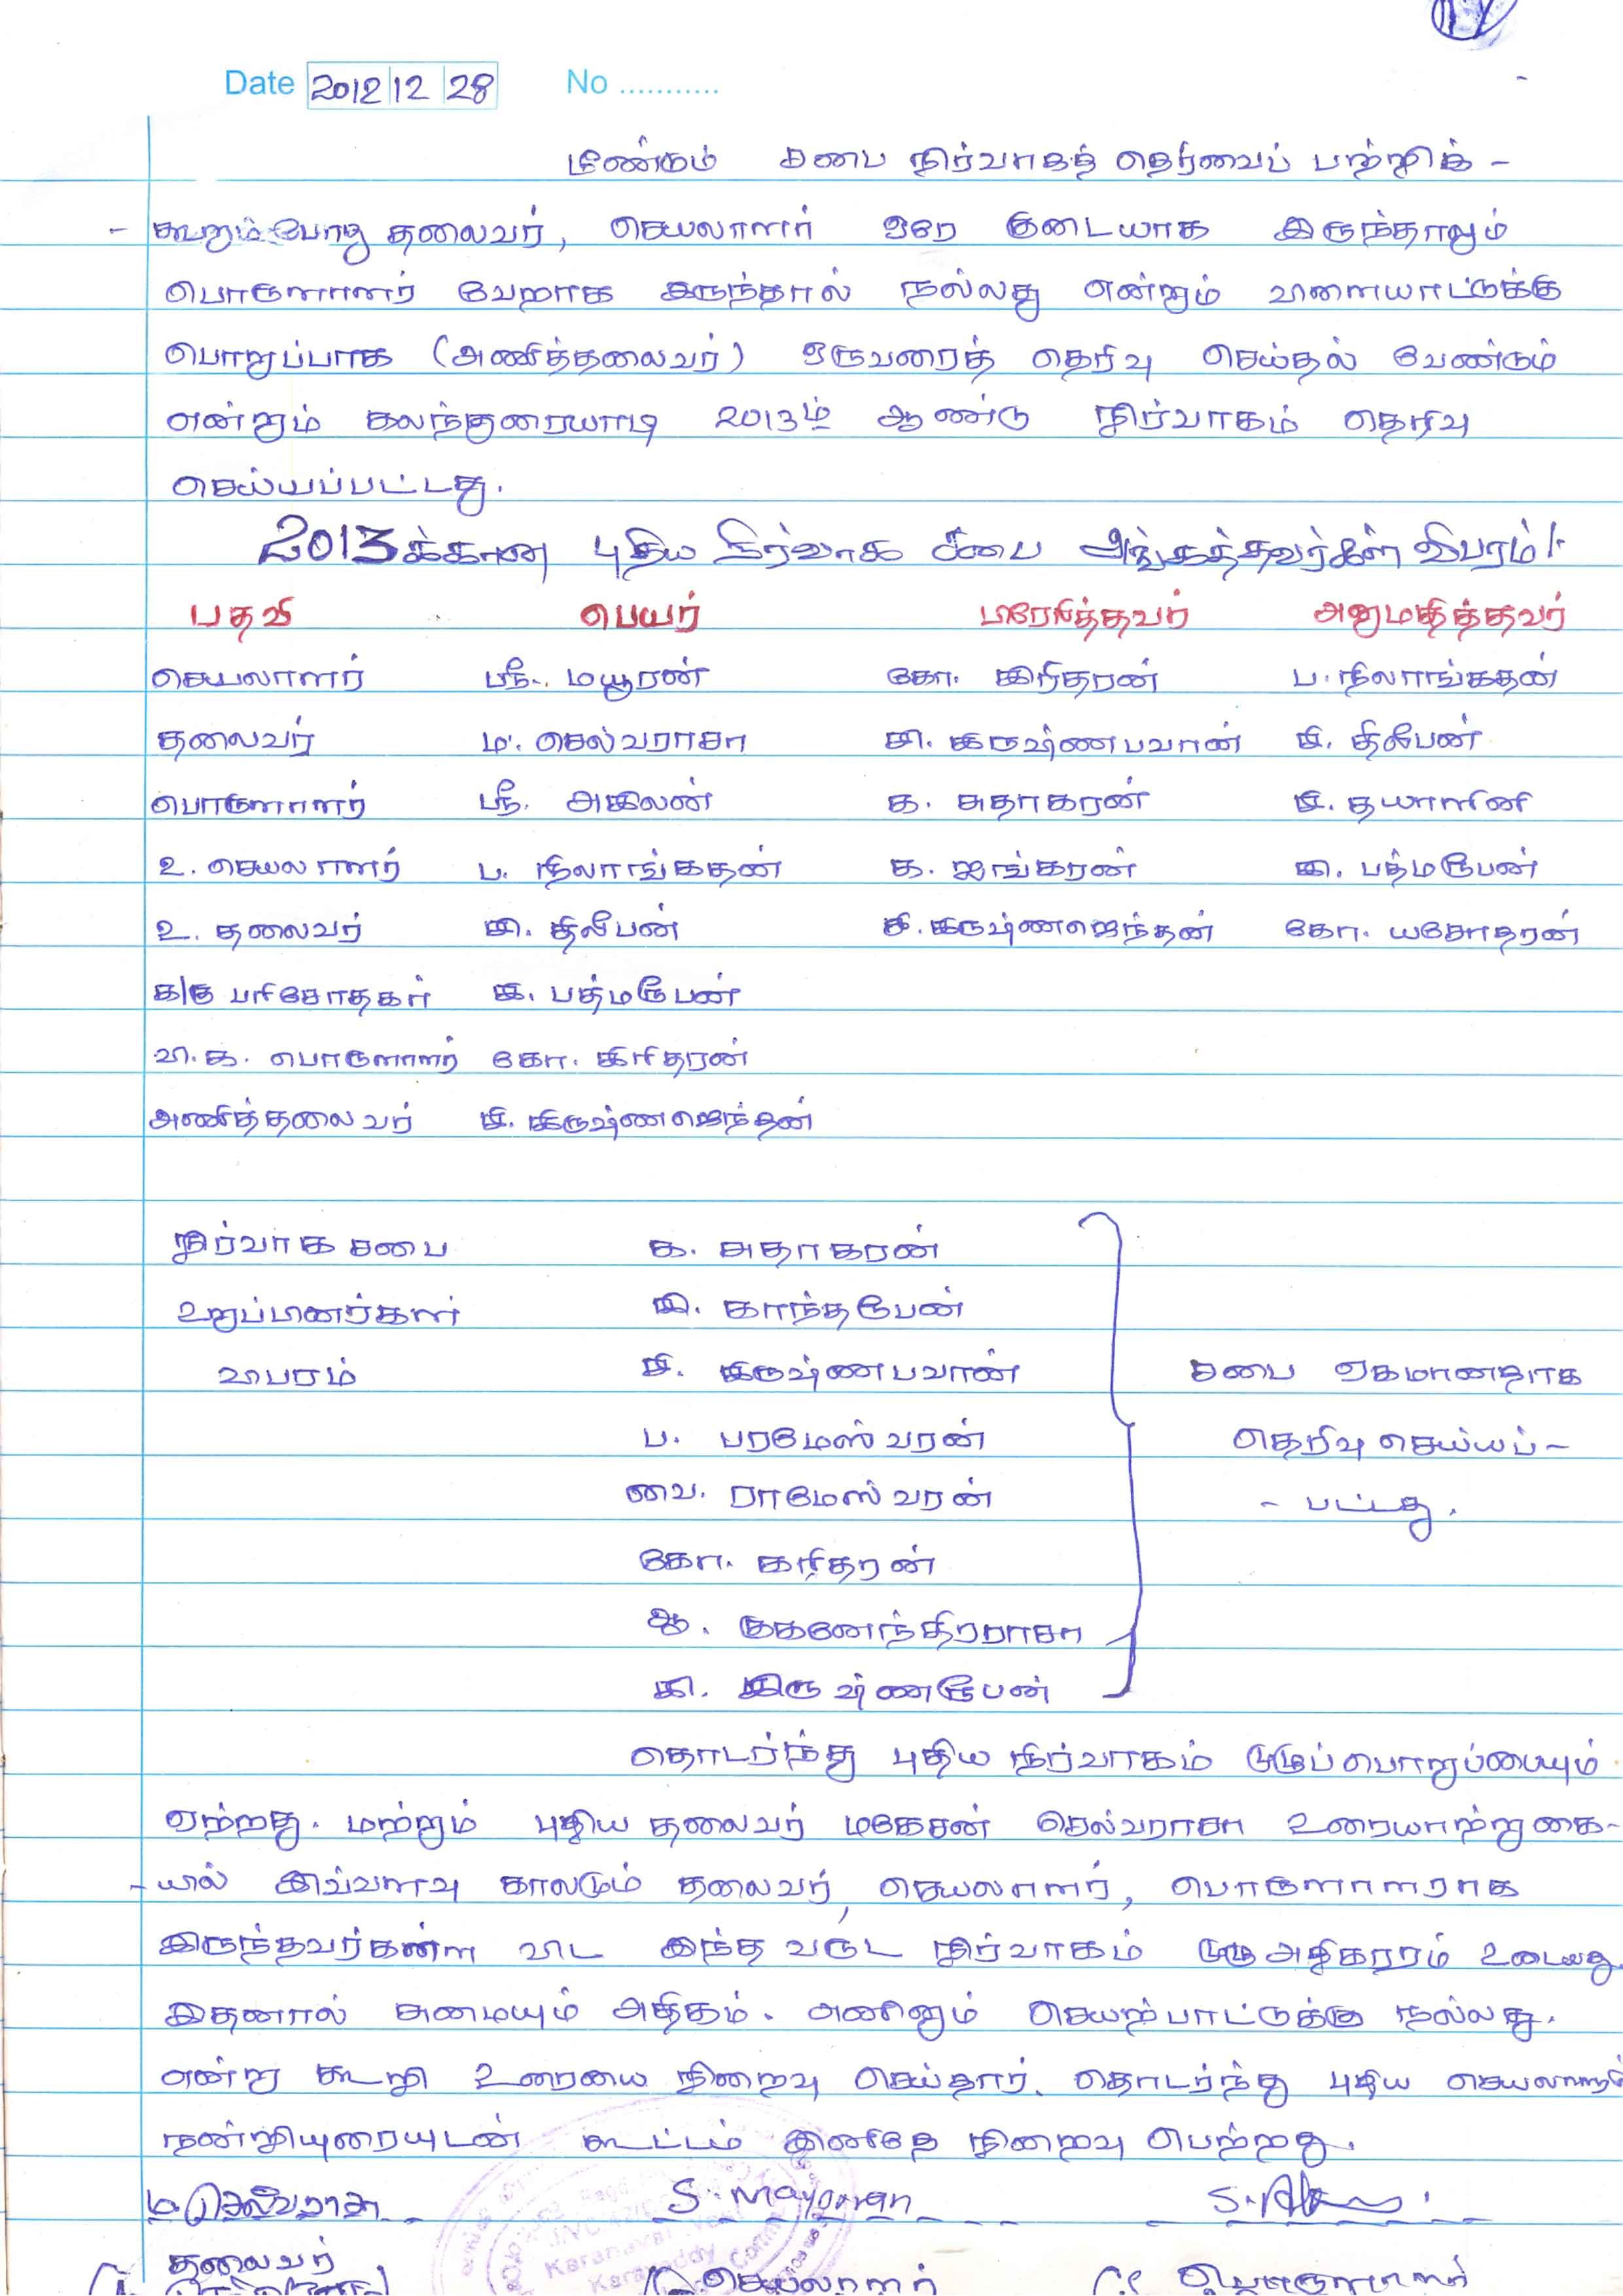 Date 2012 12 28 No ...........
மீண்டும் சபை நிர்வாகத் தெரிவைப் பற்றிக் -
- கூறும்போது தலைவர், செயலாளர் ஒரே குடையாக இருந்தாலும்
பொருளாளர் வேறாக இருந்தால் நல்லது என்றும் விளையாட்டுக்கு
பொறுப்பாக (அணித்தலைவர்) ஒருவரைத் தெரிவு செய்தல் வேண்டும்
என்றும் கலந்துரையாடி 2013ம் ஆண்டு நிர்வாகம் தெரிவு
செய்யப்பட்டது.
2013க்கான புதிய நிர்வாக சபை அங்கத்தவர்கள் விபரம்!.
பதவி பெயர் பிரேரித்தவர் அனுமதித்தவர்
செயலாளர் ஸ்ரீ. மயூரன் கோ. கிரிதரன் ப. நிலாங்கதன்
தலைவர் ம. செல்வராசா சி. கிருஷ்ணபவான் சி. திலீபன்
பொருளாளர் ஸ்ரீ. அகிலன் க. சுதாகரன் சி. தயாளினி
உ. செயலாளர் ப. நிலாங்கதன் க. ஐங்கரன் கி. பத்மரூபன்
உ. தலைவர் கி. திலீபன் சி. கிருஷ்ணஜெந்தன் கோ. யசோதரன்
க/கு பரிசோதகர் கி. பத்மரூபன்
வி.க. பொருளாளர் கோ. கிரிதரன்
அணித்தலைவர் சி. கிருஷ்ணஜெந்தன்
நிர்வாக சபை க. சுதாகரன்
உறுப்பினர்கள் கி. காந்தரூபன்
விபரம் சி. கிருஷ்ணபவான் சபை ஏகமானதாக
ப. பரமேஸ்வரன் தெரிவு செய்யப் -
வை. ராமேஸ்வரன் - பட்டது.
கோ. கிரிதரன்
ஆ. குகனேந்திரராசா
கி. கிருஷ்ணரூபன்
தொடர்ந்து புதிய நிர்வாகம் முழுப்பொறுப்பையும்
ஏற்றது. மற்றும் புதிய தலைவர் மகேசன் செல்வராசா உரையாற்றுகை-
- யில் இவ்வளவு காலமும் தலைவர், செயலாளர், பொருளாளராக
இருந்தவர்களை விட இந்த வருட நிர்வாகம் முழு அதிகாரம் உடையது.
இதனால் சுமையும் அதிகம். அணினும் செயற்பாட்டுக்கு நல்லது.
என்று கூறி உரையை நிறைவு செய்தார். தொடர்ந்து புதிய செயலாளர்
நன்றியுரையுடன் கூட்டம் இனிதே நிறைவு பெற்றது.
ம. செல்வராசா S. Mayooran
தலைவர் செயலாளர் பொருளாளர்